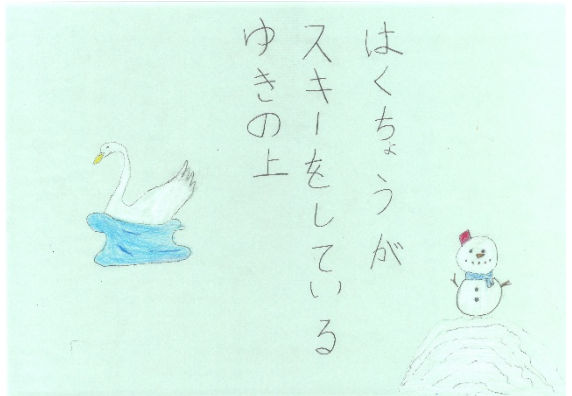 はくちょうが
スキーをしている
ゆきの上